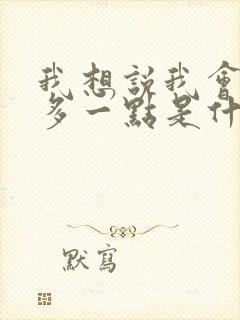 我想説我會
多一點是什
默寫